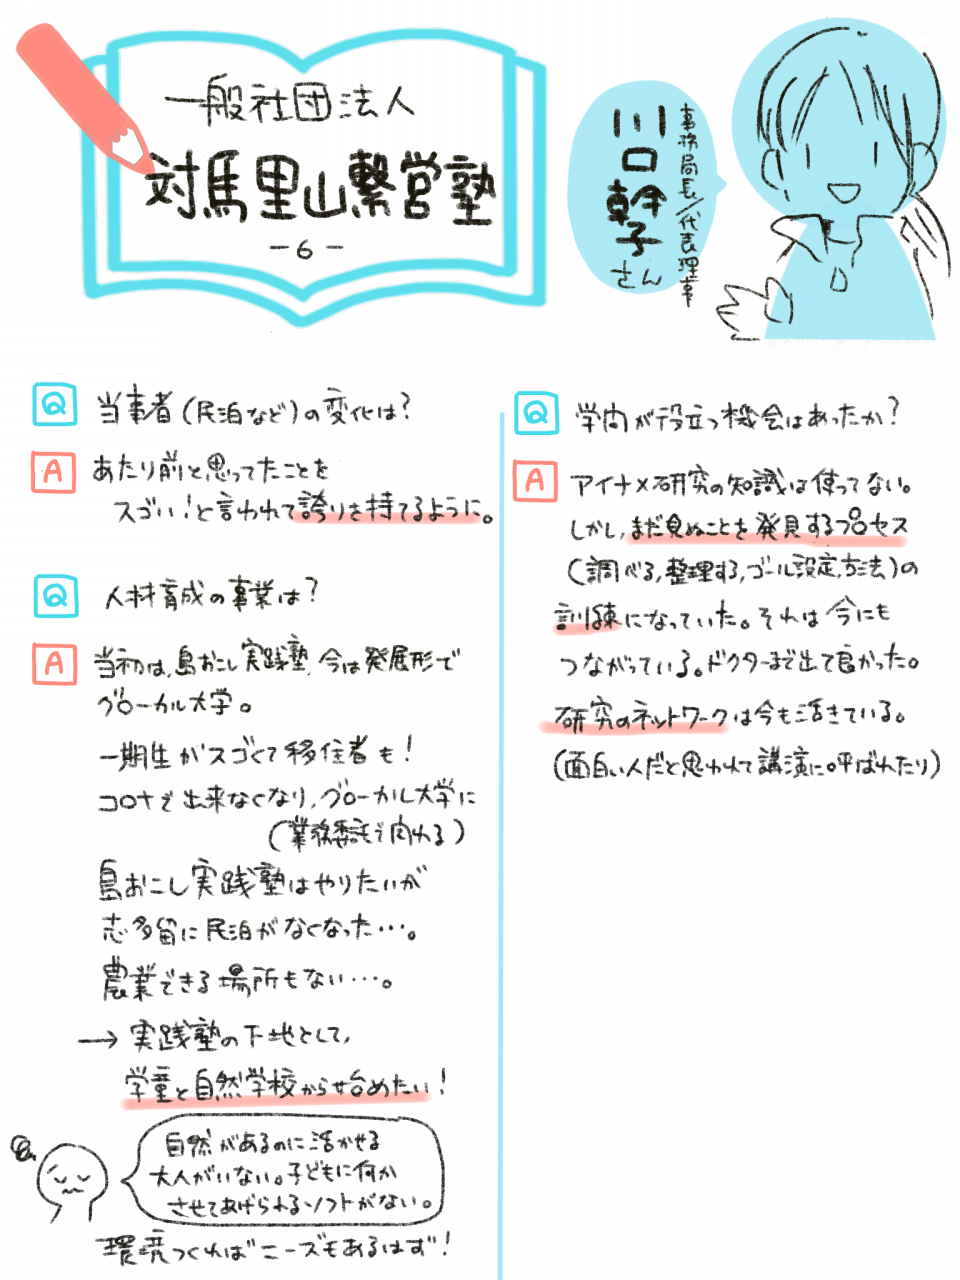 一般社団法人
対馬里山繋営塾
-6-
事務局長/代表理事
川口幹子さん
Q 当事者(民泊など)の変化は?
A あたり前と思ってたことを
スゴい!と言われて誇りを持てるように。
Q 人材育成の事業は?
A 当初は、島おこし実践塾、今は発展形で
グローカル大学。
一期生がスゴくて移住者も!
コロナで出来なくなり、グローカル大学に
(業務委託で関わる)
島おこし実践塾はやりたいが
志多留に民泊がなくなった…。
農業できる場所もない…。
→実践塾の下地として、
学童と自然学校から始めたい!
自然があるのに活かせる
大人がいない。子どもに何か
させてあげられるソフトがない。
環境つくればニーズもあるはず!
Q 学問が役立つ機会はあったか?
A アイナメ研究の知識は使ってない。
しかし、まだ見ぬことを発見するプロセス
(調べる,整理する,ゴール設定,方法)の
訓練になっていた。それは今にも
つながっている。ドクターまで出て良かった。
研究のネットワークは今も活きている。
(面白い人だと思われて講演に呼ばれたり)